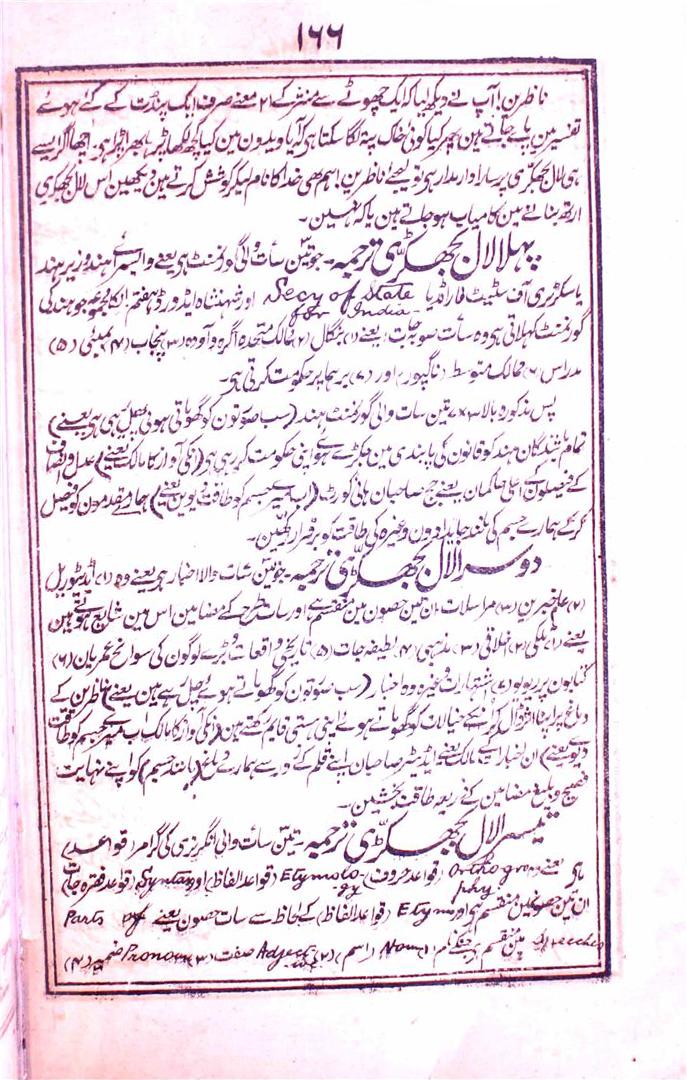 ۱۶۶
ناظرین! آپ نے دیکھ لیا کہ ایک چھوٹے سے منتر کے ۲۱ معنے صرف ایک پنڈت کے کئے ہوئے
تفسیر مین پائے جاتے ہین پھر کیا کوئی خاک پتہ لگا سکتا ہی کہ آیا ویدون مین کیا کچھ لکھا پڑا بھرا پڑا ہو۔ اچھا اگر ایسے
ہی لال بجھکڑی پر سارا دار مدار ہی تو لیجئے ناظرین! ہم بھی خدا کا نام لیکر کوشش کرتے ہین دیکھین اس لال بجھکڑی
ارتھ بنانے مین کامیاب ہو جاتے ہین یا کہ نہین۔
پہلا لال بجھکڑی ترجمہ۔ جو تین سات والی گورنمنٹ ہی یعنے وایسرائے ہند وزیر ہند
یا سکرٹری آف سٹیٹ فار انڈیا Secy of State for India اور شہنشاہ ایڈورڈ ہفتم انکا مجموعہ جو ہند کی
گورنمنٹ کہلاتی ہی وہ سات صوبہ جات یعنے (۱) بنگال (۲) ممالک متحدہ آگرہ و آودہ (۳) پنجاب (۴) بمبئی (۵)
مدراس (۶) ممالک متوسط (ناگپور) اور (۷) برہما پر حکومت کرتی ہی۔
پس مذکورہ بالا ۳×۷ تین سات والی گورنمنٹ ہند (سب صورتون کو گھوماتی ہوئی چل رہی ہی یعنے)
تمام باشندگان ہند کو قانون کی پابندی مین جکڑے ہوئے اپنی حکومت کر رہی ہی (انکی آواز کا مالک یعنے) عدل و انصاف
کے فیصلون کے اعلی حاکمان یعنے جج صاحبان ہائی کورٹ (اب میرے جسم کو طاقت دیوین یعنے) ہمارے مقدمون کو فیصل
کرکے ہمارے جسم کی مانند جایدادون وغیرہ کی طاقت کو برقرار رکھین۔
دوسرا لال بجھکڑی ترجمہ۔ جو تین سات والا اخبار ہی یعنے وہ (۱) ایڈیٹوریل
(۲) عام خبرین (۳) مراسلات۔ ان تین حصون مین منقسم ہے اور سات طرح کے مضامین اس مین شایع ہوتے ہین
یعنے (۱) ملکی (۲) اخلاقی (۳) مذہبی (۴) لطیفہ جات (۵) تاریخی واقعات و بڑے لوگون کی سوانح عمریان (۶)
کتابون پر ریویو (۷) اشتہارات وغیرہ وہ اخبار (سب صورتون کو گھوماتے ہوئے چل رہے ہین یعنے) ناظرین کے
دماغ پر اپنا اثر ڈال کر انکے خیالات کو گھوماتے ہوئے اپنی ہستی قایم رکھتے ہین (انکی آواز کا مالک اب میرے جسم کو طاقت
دیوے یعنے) ان اخبار کے مالک یعنے ایڈیٹر صاحبان اپنے قلم کے زور سے ہمارے دماغ (مانند جسم) کو اپنے نہایت
فصیح و بلیغ مضامین کے ذریعہ طاقت بخشین۔
تیسرا لال بجھکڑی ترجمہ۔ تین سات والی انگریزی کی گرامر (قواعد)
ہی یعنے Orthography (قواعد حروف) Etymology (قواعد الفاظ) اور Syntax (قواعد فقرہ جات)
ان تین حصونمین منقسم ہی اور Etym (قواعد الفاظ) کے لحاظ سے سات حصون یعنے Parts of
Speeches مین منقسم ہی جنکے نام (۱) Noun (اسم) (۲) Adjective صفت (۳) Pronoun ضمیر (۴)